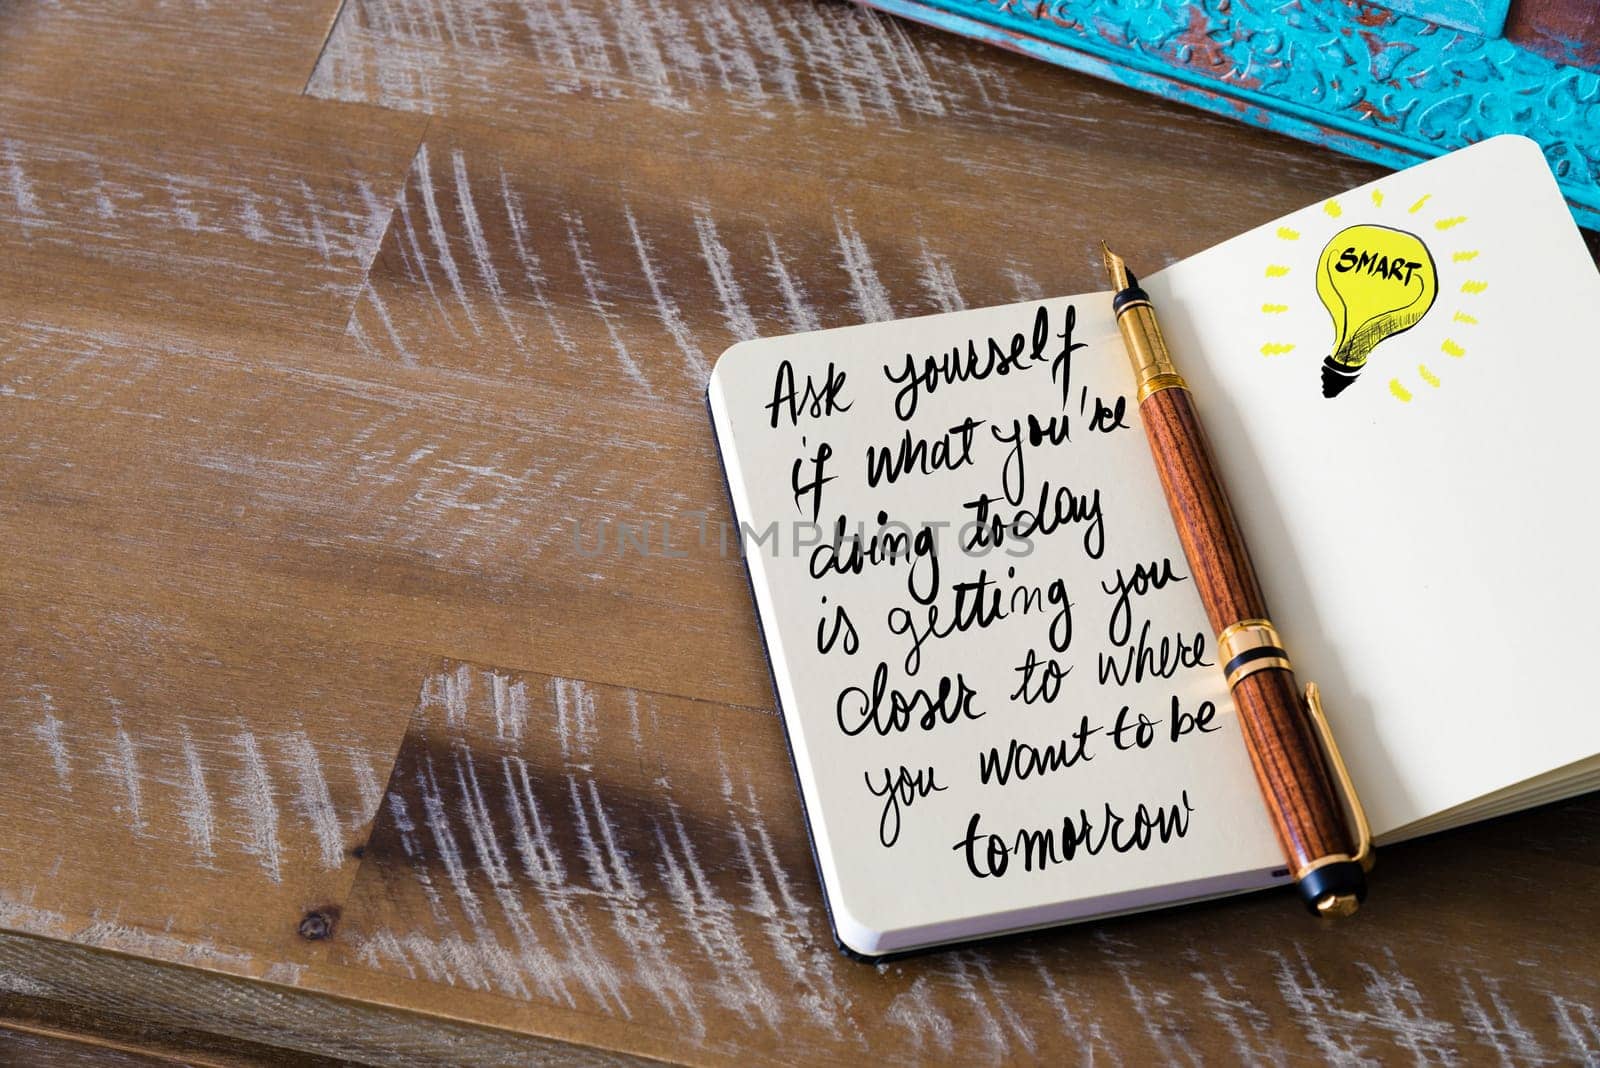 Ask yourself
if what you're
doing today
is getting you
closer to where
you want to be
tomorrow
SMART
UNLIMPHOTOS